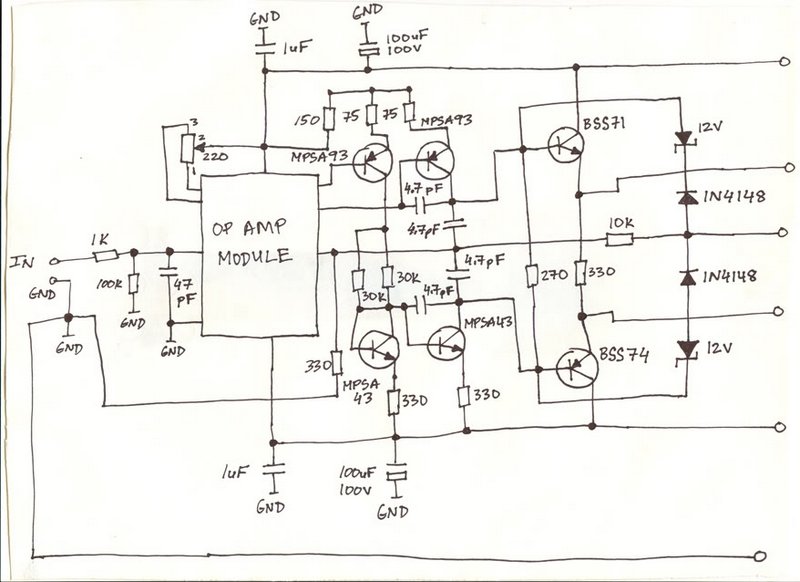 GND
GND
1uF
100uF
100V
3
2
220
1
150
75
75
MPSA93
MPSA93
BSS71
12V
4.7pF
4.7pF
1N4148
OP AMP
MODULE
IN
1K
10K
GND
100K
47
pF
GND
GND
GND
30K
30K
4.7pF
4.7pF
270
330
1N4148
MPSA43
330
MPSA
43
330
330
BSS74
12V
1uF
GND
100uF
100V
GND